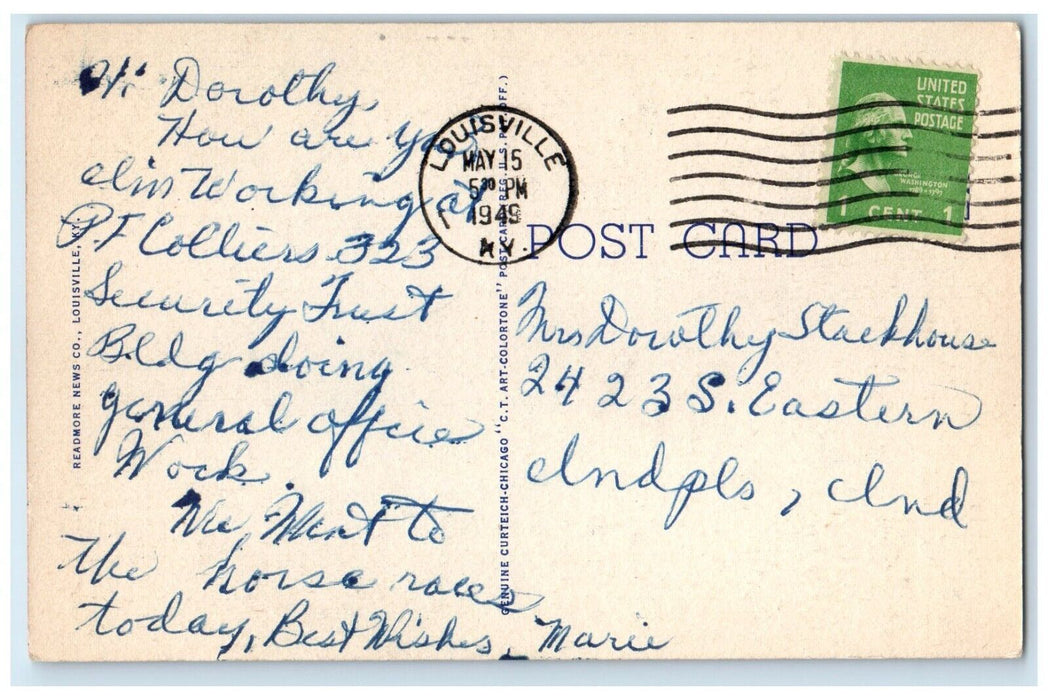 Hi Dorothy,
How are you
I'm Working at
P.F Colliers 323
Security Trust
Bldg doing
general office
Work.
We Went to
the horse races
today, Best Wishes, Marie
READMORE NEWS CO., LOUISVILLE, KY.
GENUINE CURTEICH-CHICAGO "C.T. ART-COLORTONE" POST CARD (REG. U.S. PAT. OFF.)
LOUISVILLE
MAY 15
5 30 PM
1949
KY.
1
UNITED
STATES
POSTAGE
GEORGE
WASHINGTON
1789-1797
1 CENT 1
POST CARD
Mrs Dorothy Stackhouse
2423 S. Eastern
Indpls, Ind